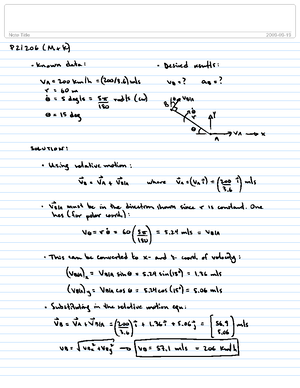 Note Title
2008-09-15
P2/206 (M+K)
- Known data:
- Desired results:
vA = 200 km/h = (200/3.6) m/s
vB = ? aB = ?
r = 60 m
θ̇ = 5 deg/s = 5π/180 rad/s (cw)
θ = 15 deg
B vB/A θ̇ r θ A vA x
SOLUTION:
• Using relative motion:
v⃗B = v⃗A + v⃗B/A where v⃗A = (vA î) = (200/3.6 î) m/s
• v⃗B/A must be in the direction shown since r is constant. One
has (for polar coord):
vθ = r θ̇ = 60 (5π/180) = 5.24 m/s = vB/A
• This can be converted to x- and y- coord. of velocity:
(vB/A)x = vB/A sin θ = 5.24 sin(15°) = 1.36 m/s
(vB/A)y = vB/A cos θ = 5.24 cos(15°) = 5.06 m/s
• Substituting in the relative motion eqn:
v⃗B = v⃗A + v⃗B/A = (200/3.6) î + 1.36 î + 5.06 ĵ = [56.9 5.06] m/s
vB = √(vBx² + vBy²) → vB = 57.1 m/s = 206 km/h